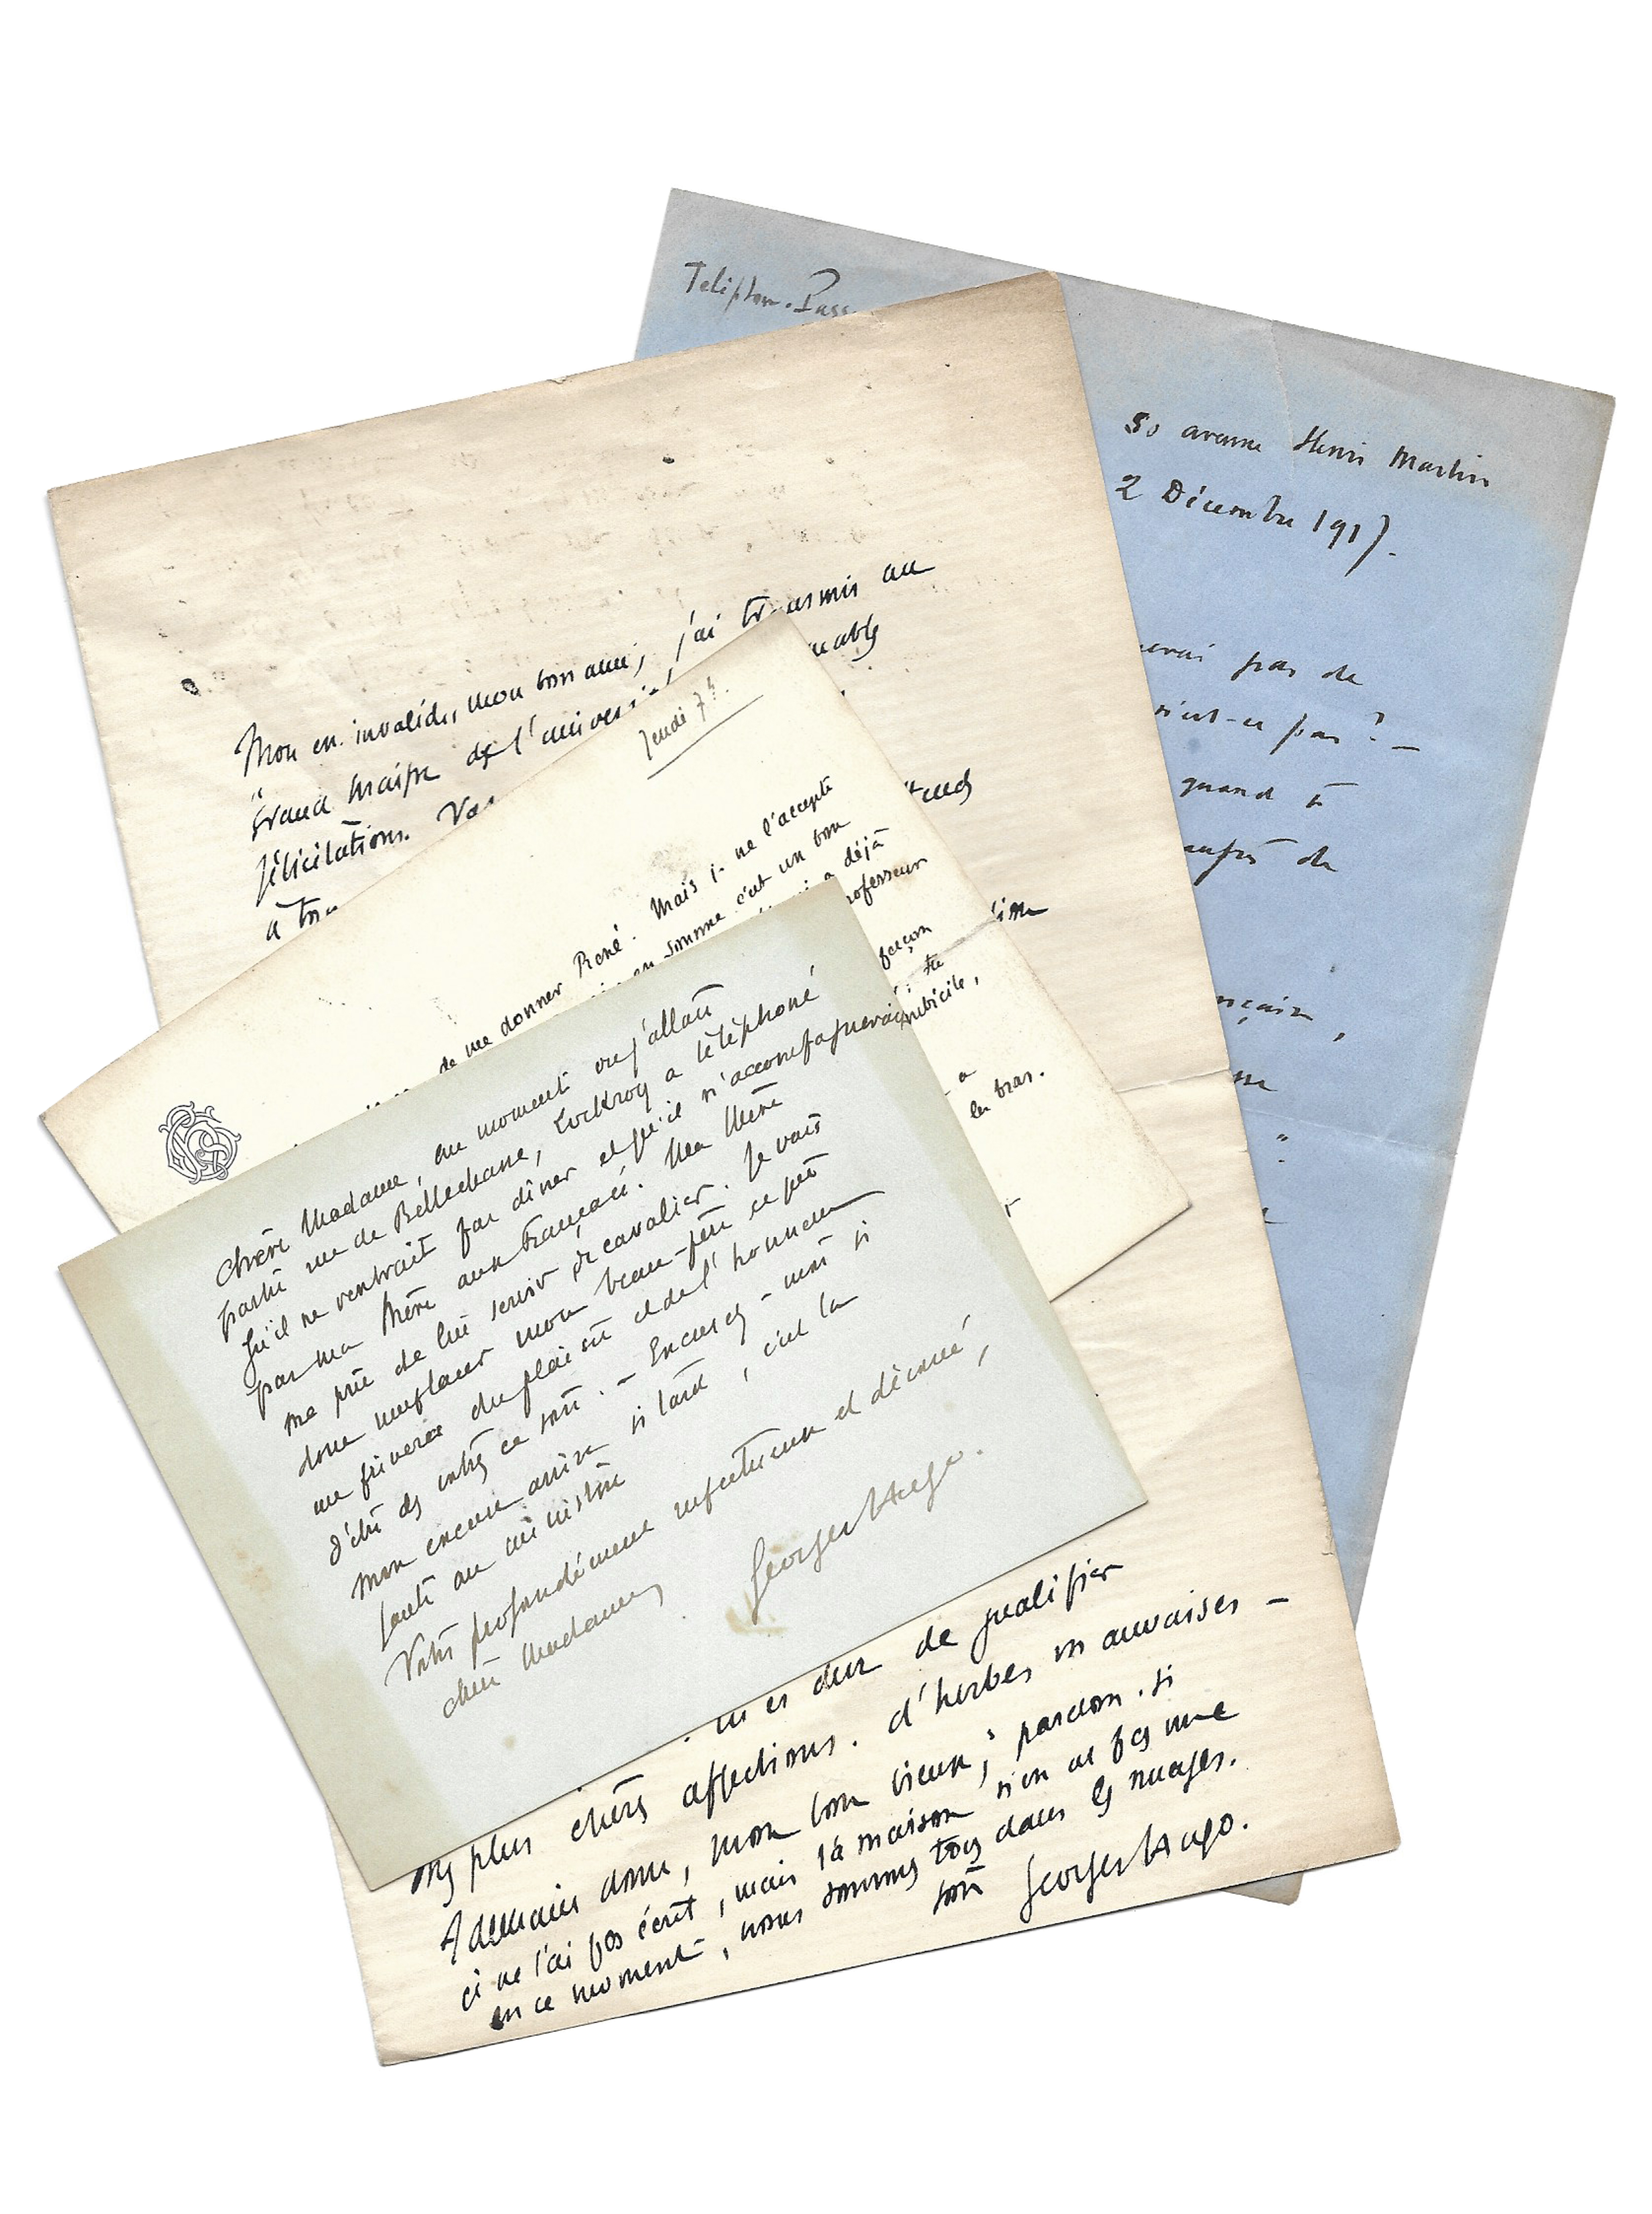 Teléphon. Pass
50 avenue Henri Martin
2 Décembre 1917.
pas de
n'est-ce pas ? —
quand à
auprès de
Mon en. invalides, mon bon ami, j'ai transmis au
Grand Maître de l'
félicitations. Vos
à tou
Jeudi 7h.
de me donner René. Mais je ne l'accepte
en somme c'est un bon
a déjà
professeur
façon
imbécile,
a
les bras.
Chère Madame, au moment où j'allais
partir rue de Bellechasse, Lockroy a téléphoné
qu'il ne rentrait pas dîner et qu'il n'accompagnerait
pas ma Mère aux Français. Ma Mère
me prie de lui servir de cavalier. Je vais
donc remplacer mon beau-père ce qui
me privera du plaisir et de l'honneur
d'être des vôtres ce soir. — Excusez-moi si
mon excuse arrive si tard, c'est la
faute au ministère
Votre profondément respectueux et dévoué,
chère Madame,
Georges Hugo.
tu es dur de qualifier
mes plus chères affections. d'herbes mauvaises —
A demain donc, mon bon vieux ; pardon. si
je ne t'ai pas écrit, mais la maison n'en est pas une
en ce moment, nous sommes tous dans les nuages.
ton Georges Hugo.